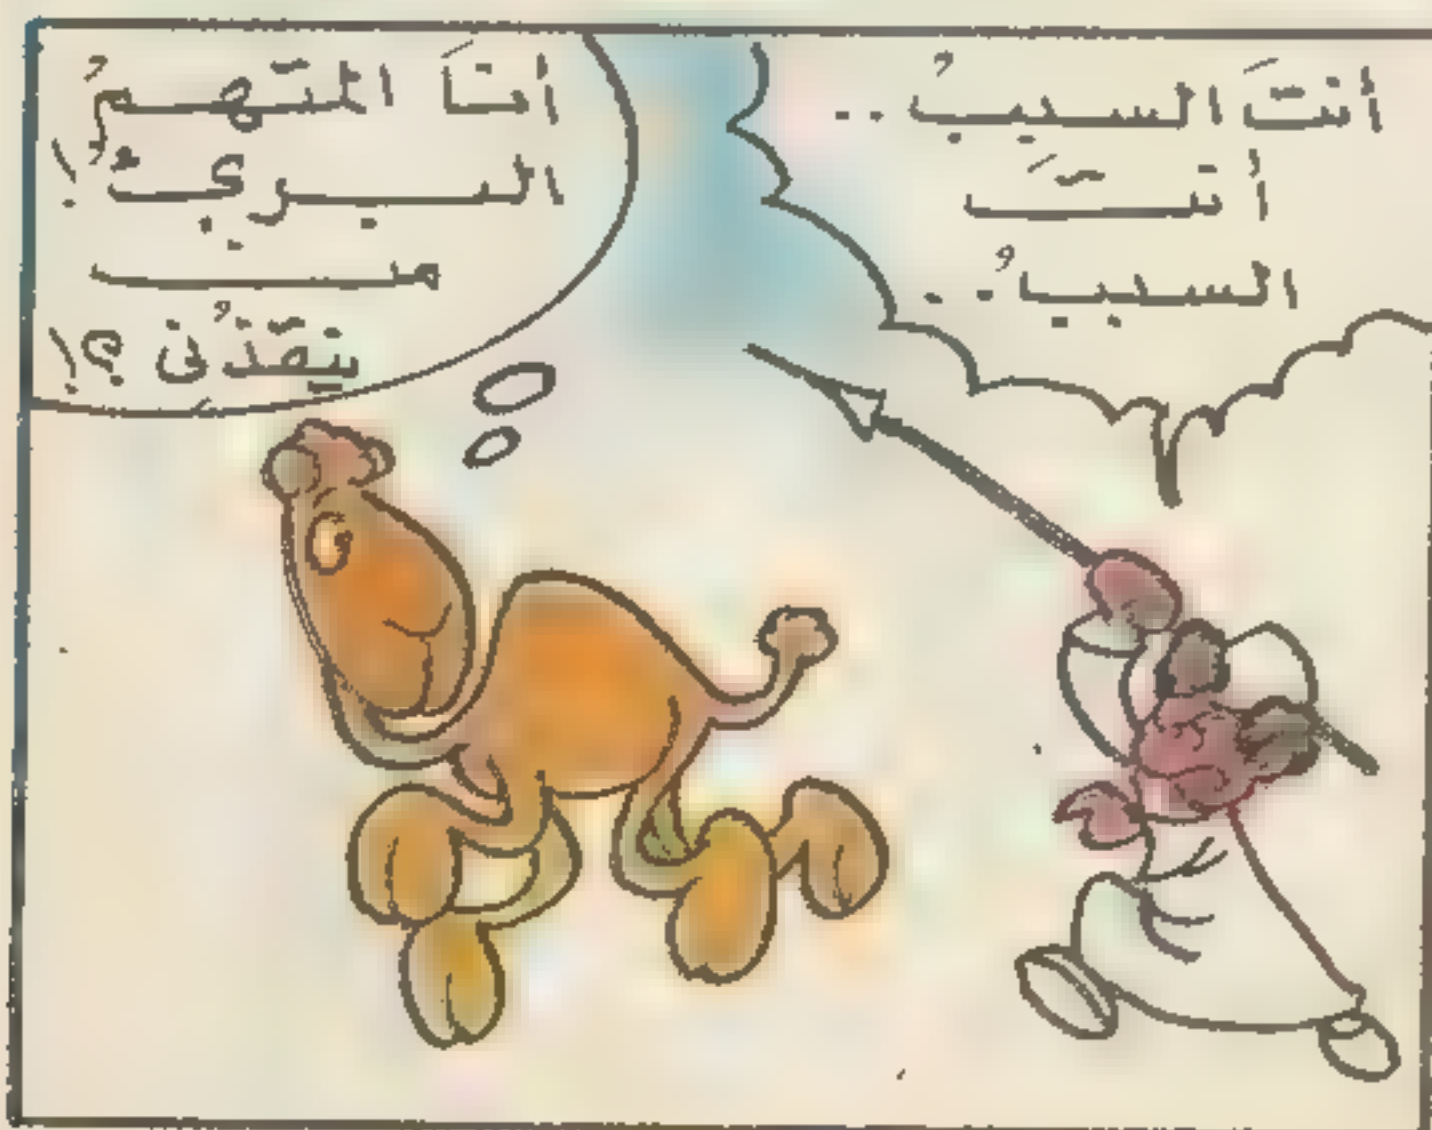 أنتَ السببُ ..
أنتَ
السببُ ..
أنَا المتّهمُ
البريءُ !
من
ينقّذُنى ؟!